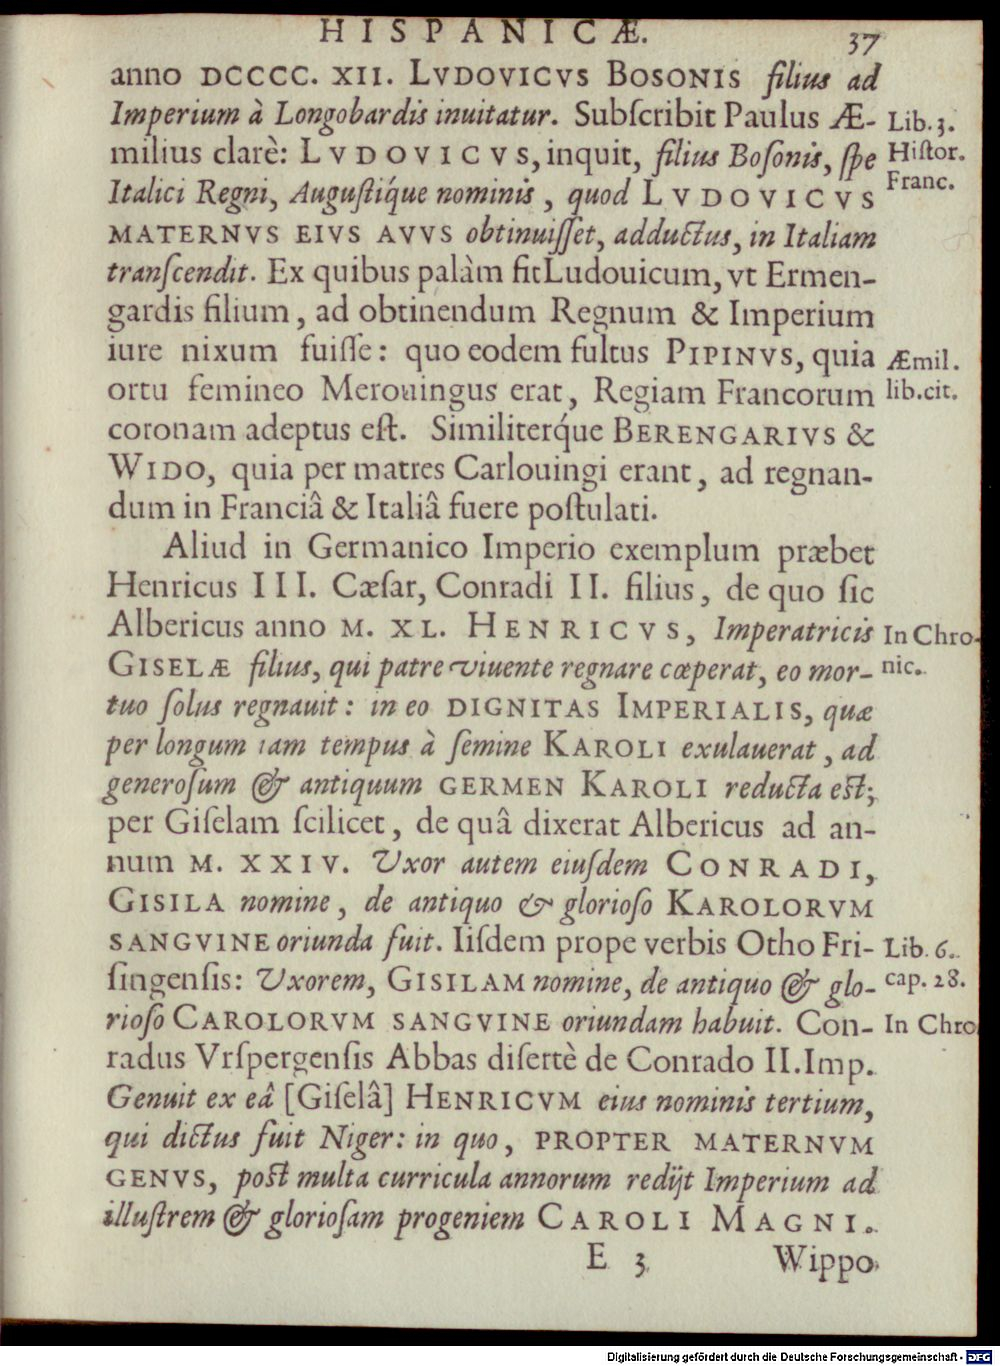 HISPANICÆ. 37
anno DCCCC. XII. LVDOVICVS BOSONIS filius ad
Imperium à Longobardis inuitatur. Subſcribit Paulus Æ- Lib. 3.
milius clarè: LVDOVICVS, inquit, filius Boſonis, ſpe Hiſtor.
Italici Regni, Auguſtiq́ue nominis, quod LVDOVICVS Franc.
MATERNVS EIVS AVVS obtinuiſſet, adductus, in Italiam
tranſcendit. Ex quibus palàm fit Ludouicum, vt Ermen-
gardis filium, ad obtinendum Regnum & Imperium
iure nixum fuiſſe: quo eodem fultus PIPINVS, quia Æmil.
ortu femineo Merouingus erat, Regiam Francorum lib. cit.
coronam adeptus eſt. Similiterq́ue BERENGARIVS &
WIDO, quia per matres Carlouingi erant, ad regnan-
dum in Franciâ & Italiâ fuere poſtulati.
Aliud in Germanico Imperio exemplum præbet
Henricus III. Cæſar, Conradi II. filius, de quo ſic
Albericus anno M. XL. HENRICVS, Imperatricis In Chro-
GISELÆ filius, qui patre viuente regnare cœperat, eo mor- nic.
tuo ſolus regnauit: in eo DIGNITAS IMPERIALIS, quæ
per longum iam tempus à ſemine KAROLI exulauerat, ad
generoſum & antiquum GERMEN KAROLI reducta eſt;
per Giſelam ſcilicet, de quâ dixerat Albericus ad an-
num M. XXIV. Vxor autem eiuſdem CONRADI,
GISILA nomine, de antiquo & glorioſo KAROLORVM
SANGVINE oriunda fuit. Iiſdem prope verbis Otho Fri- Lib. 6.
ſingenſis: Vxorem, GISILAM nomine, de antiquo & glo- cap. 28.
rioſo CAROLORVM SANGVINE oriundam habuit. Con- In Chro
radus Vrſpergenſis Abbas diſertè de Conrado II. Imp.
Genuit ex eâ [Giſelâ] HENRICVM eius nominis tertium,
qui dictus fuit Niger: in quo, PROPTER MATERNVM
GENVS, poſt multa curricula annorum redijt Imperium ad
illuſtrem & glorioſam progeniem CAROLI MAGNI.
E 3 Wippo
Digitalisierung gefördert durch die Deutsche Forschungsgemeinschaft - DFG